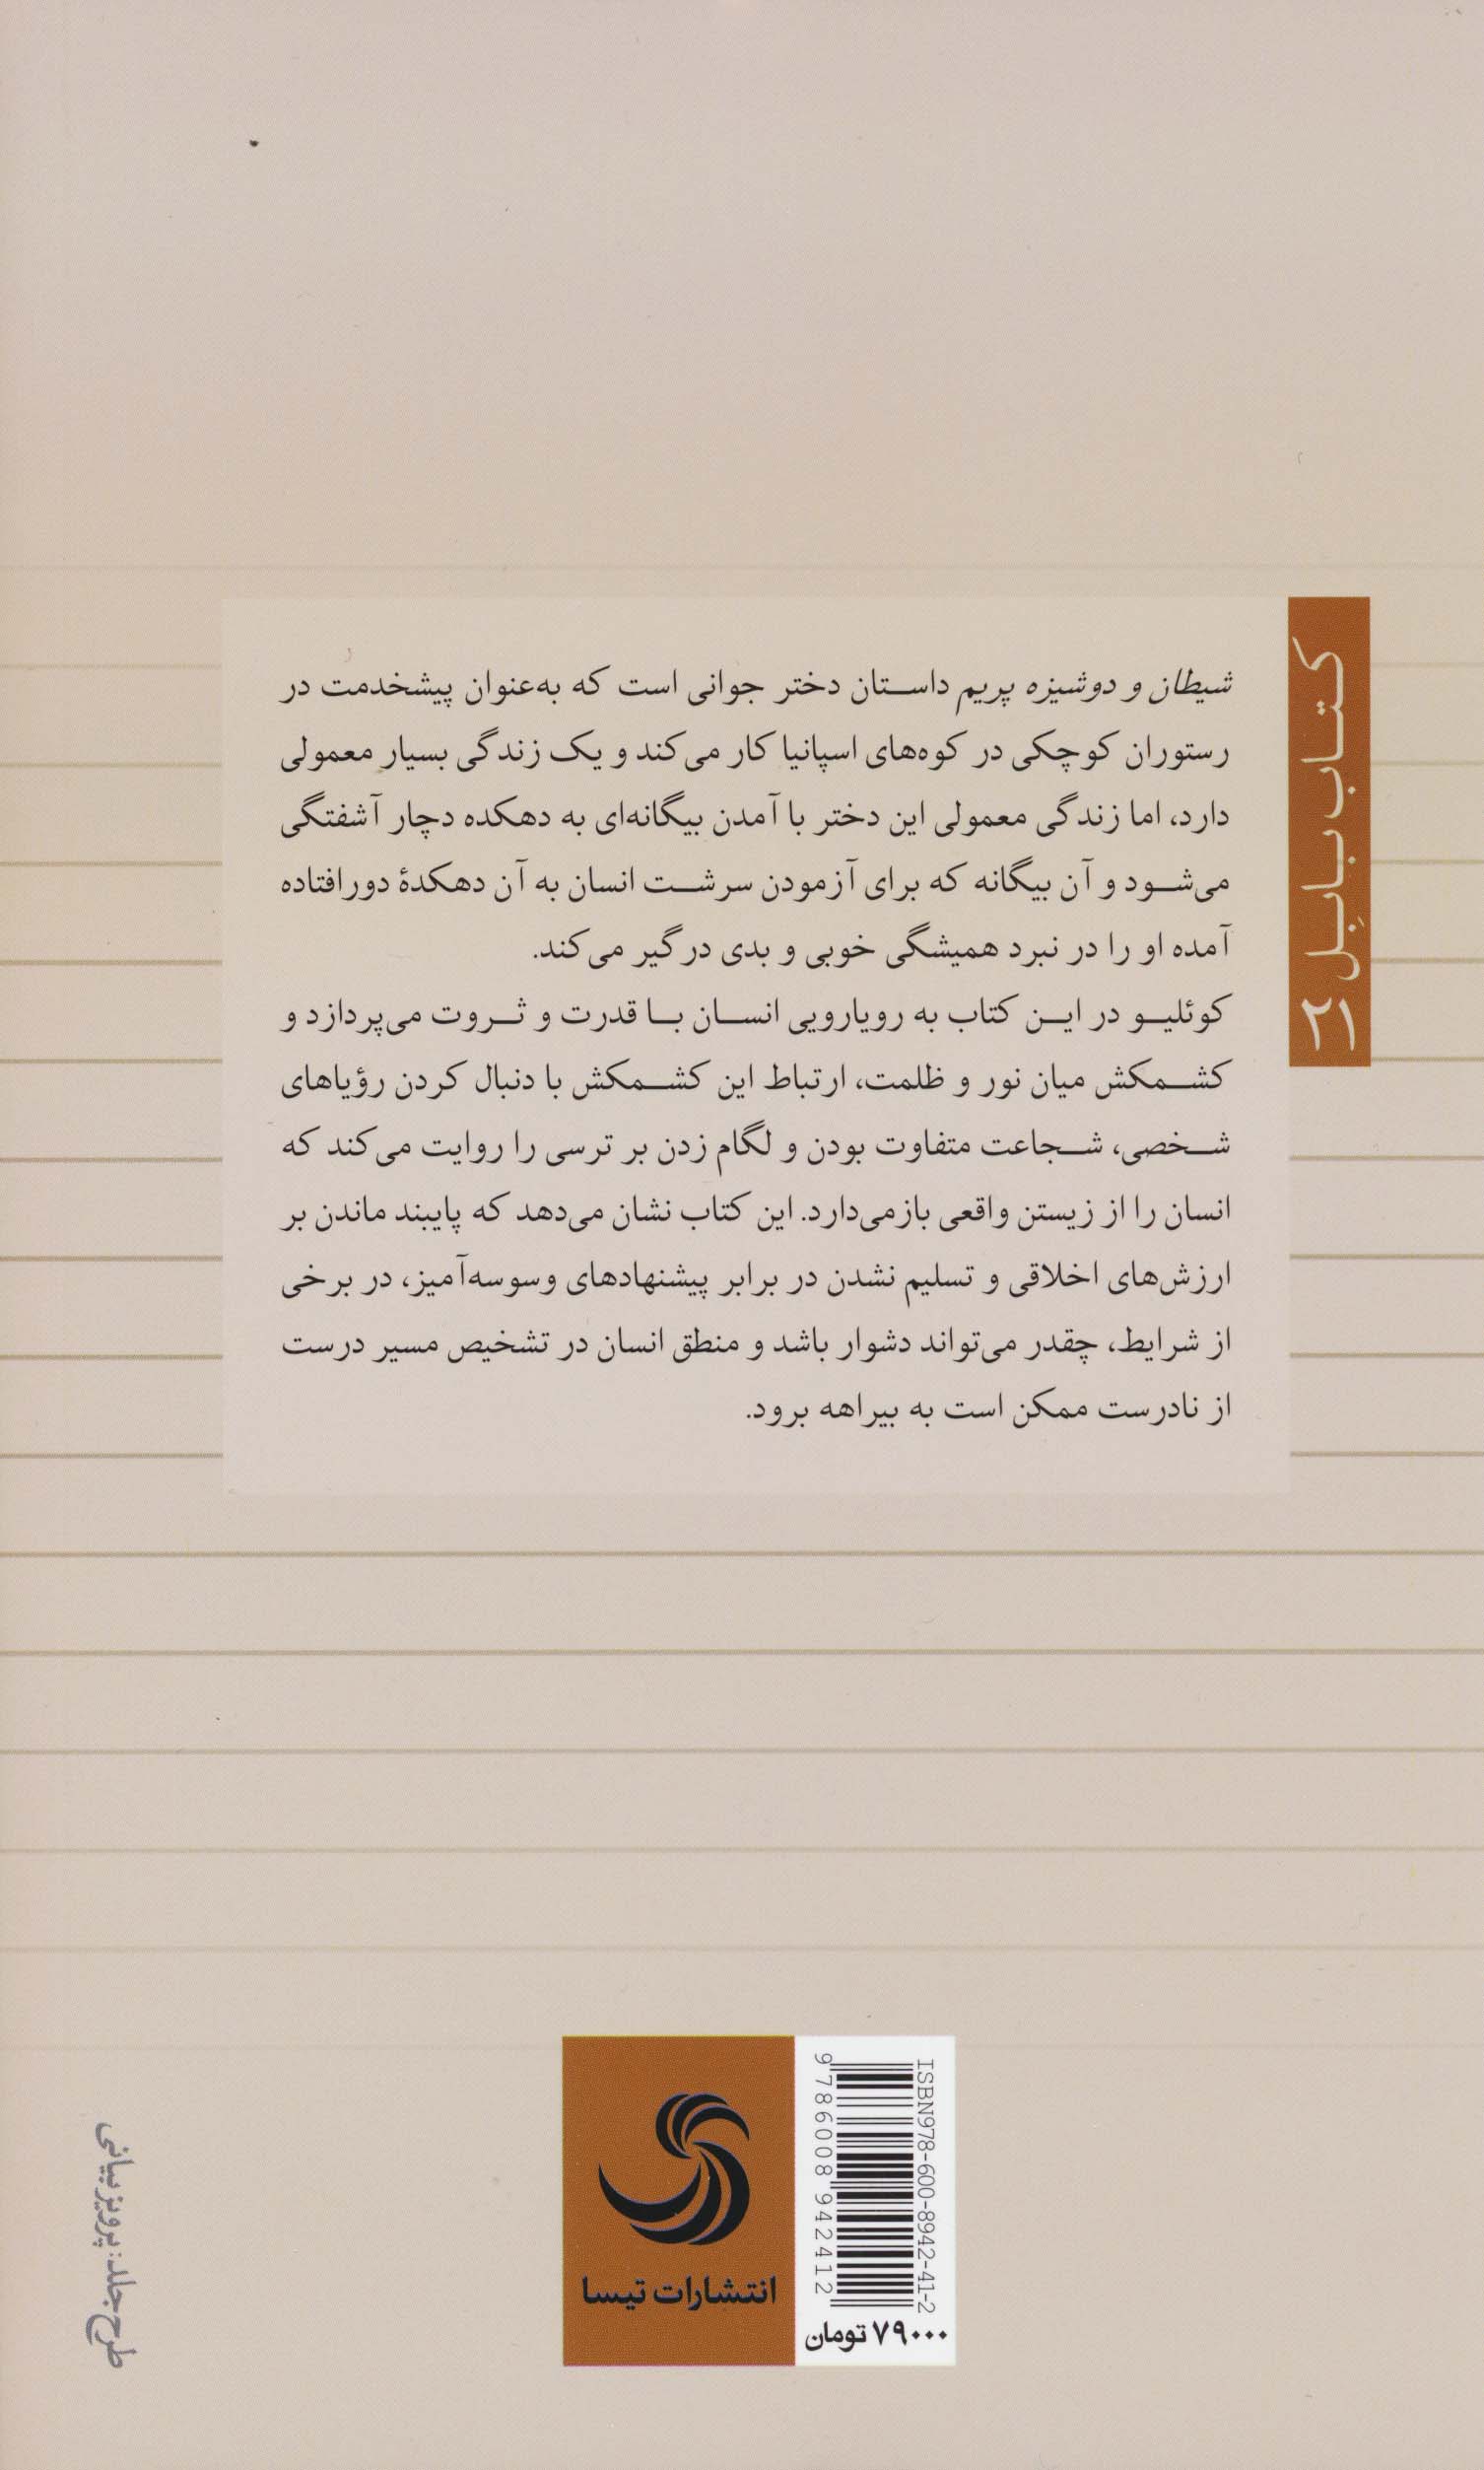 کتاب بابِل ۲۱
شیطان و دوشیزه پریم داستان دختر جوانی است که به‌عنوان پیشخدمت در
رستوران کوچکی در کوه‌های اسپانیا کار می‌کند و یک زندگی بسیار معمولی
دارد، اما زندگی معمولی این دختر با آمدن بیگانه‌ای به دهکده دچار آشفتگی
می‌شود و آن بیگانه که برای آزمودن سرشت انسان به آن دهکدهٔ دورافتاده
آمده او را در نبرد همیشگی خوبی و بدی درگیر می‌کند.
کوئلیو در این کتاب به رویارویی انسان با قدرت و ثروت می‌پردازد و
کشمکش میان نور و ظلمت، ارتباط این کشمکش با دنبال کردن رؤیاهای
شخصی، شجاعت متفاوت بودن و لگام زدن بر ترسی را روایت می‌کند که
انسان را از زیستن واقعی بازمی‌دارد. این کتاب نشان می‌دهد که پایبند ماندن بر
ارزش‌های اخلاقی و تسلیم نشدن در برابر پیشنهادهای وسوسه‌آمیز، در برخی
از شرایط، چقدر می‌تواند دشوار باشد و منطق انسان در تشخیص مسیر درست
از نادرست ممکن است به بیراهه برود.
ISBN978-600-8942-41-2
9786008942412
۷۹۰۰۰ تومان
انتشارات تیسا
طرح جلد: پرویز بیانی